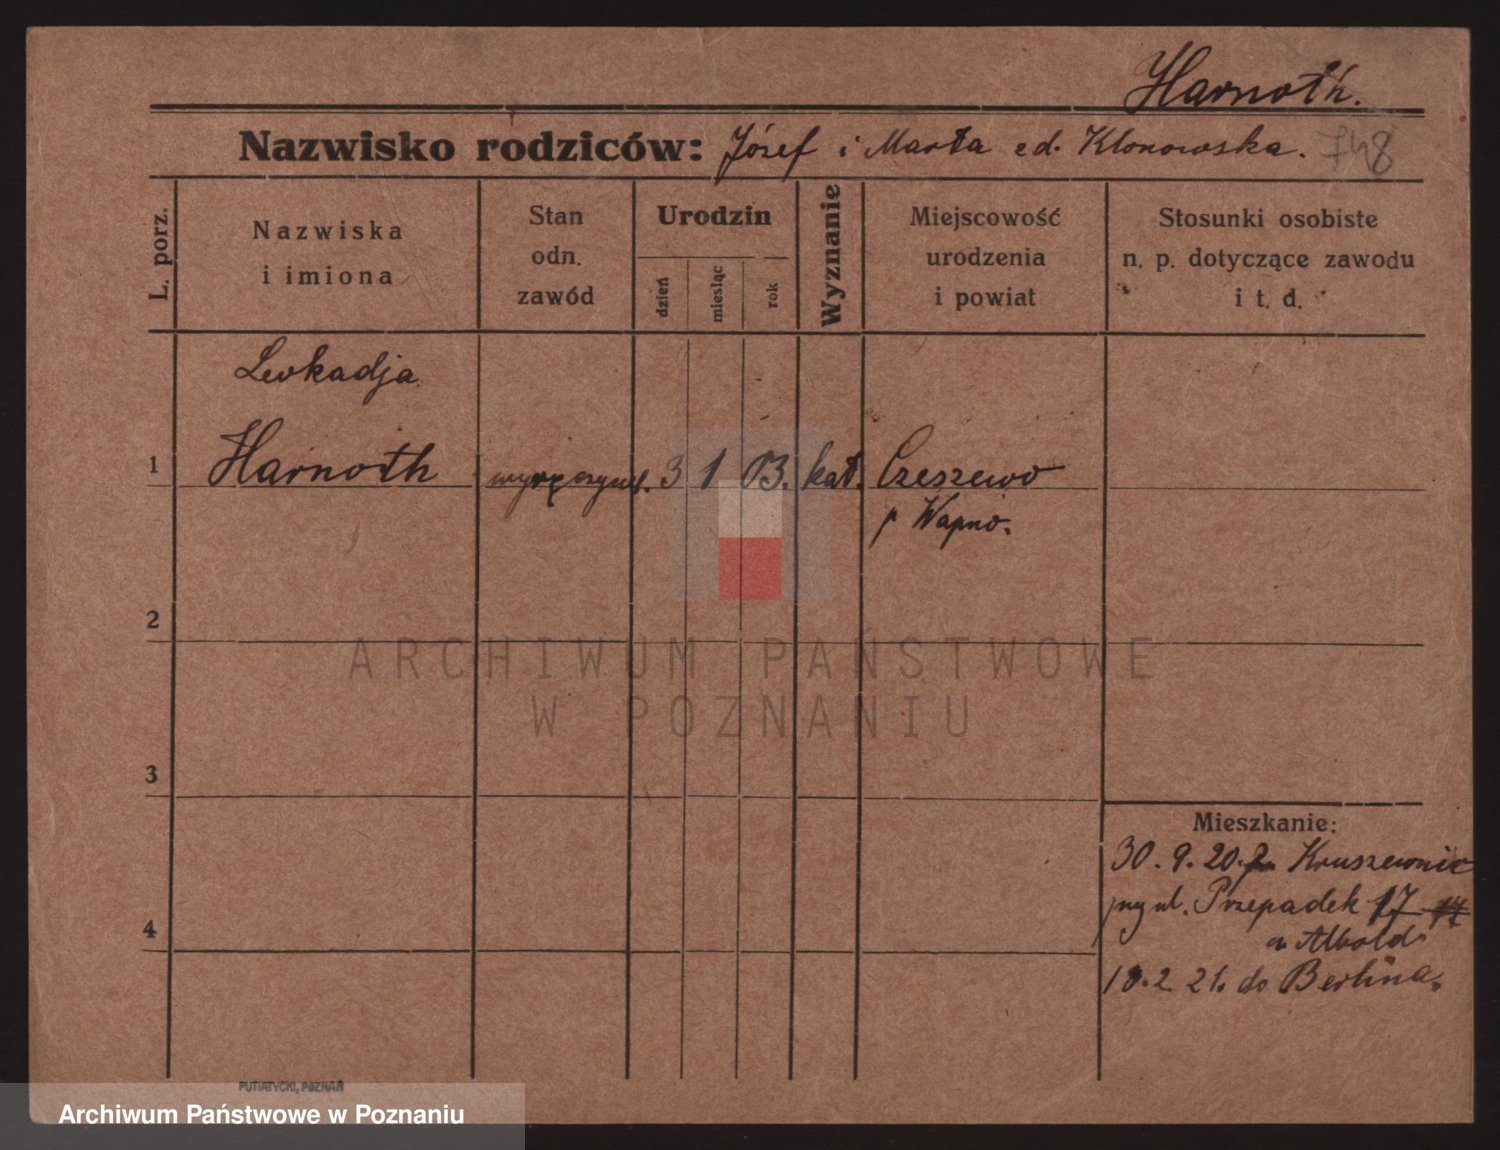 Harnoth.
Nazwisko rodziców: Józef i Marta Klonowska. 748
L. porz.
Nazwiska
i imiona
Stan
odn.
zawód
Urodzin
dzień
miesiąc
rok
Wyznanie
Miejscowość
urodzenia
i powiat
Stosunki osobiste
n. p. dotyczące zawodu
i t. d.
Leokadja
1 Harnoth 3 1 03. kat. Czeszewo
p Wapno.
2
ARCHIWUM PAŃSTWOWE
W POZNANIU
3
Mieszkanie:
30. 9. 20. Kruszewnic
ul. Przepadek 17 14
4
18. 2. 21. do Berlina.
PUTIATYCKI, POZNAŃ
Archiwum Państwowe w Poznaniu